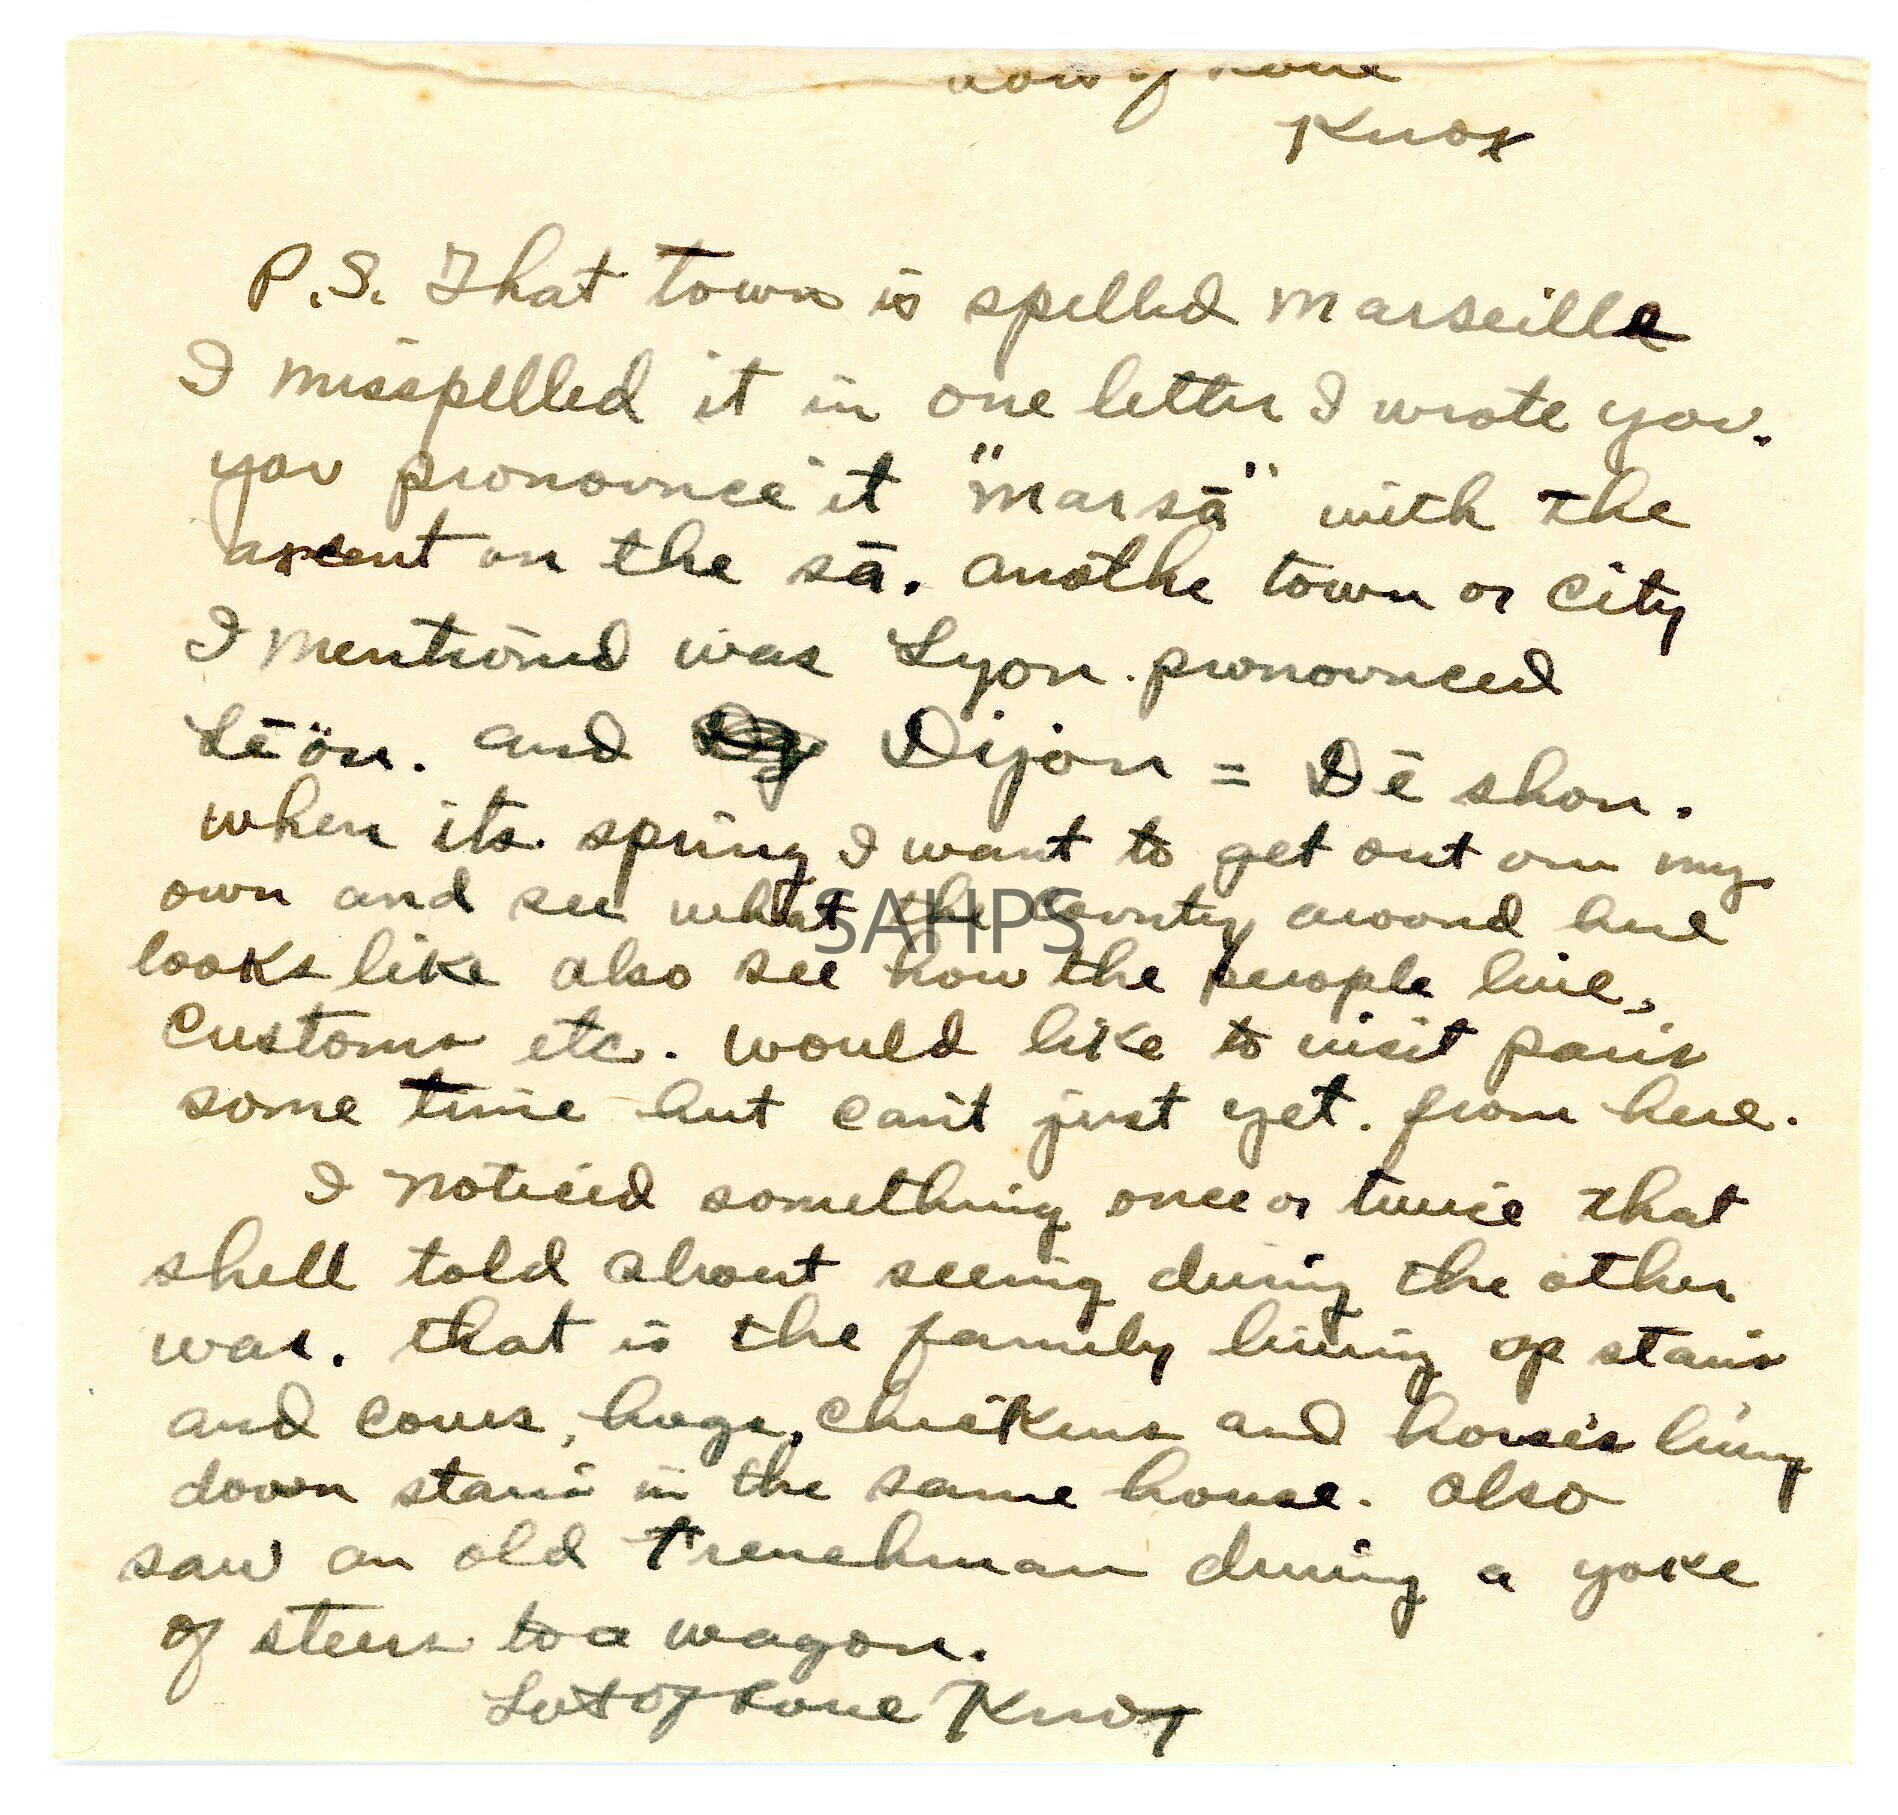 Lots of Love
Knox
P.S. That town is spelled Marseille
I misspelled it in one letter I wrote you.
you pronounce it "Marsā" with the
accent on the sā. Anothe town or city
I mentioned was Lyon. pronounced
Lē'ön. and Dijon = Dē shon.
when its spring I want to get out on my
own and see what the county around here
looks like also see how the people live,
Customs etc. would like to visit paris
some time but can't just yet. from here.
I noticed something once or twice that
shell told about seeing during the other
war. that is the family living up stairs
and cows, hogs, chickens and horses living
down stairs in the same house. Also
saw an old Frenchman driving a yoke
of steers to a wagon.
Lots of Love Knox
SAHPS